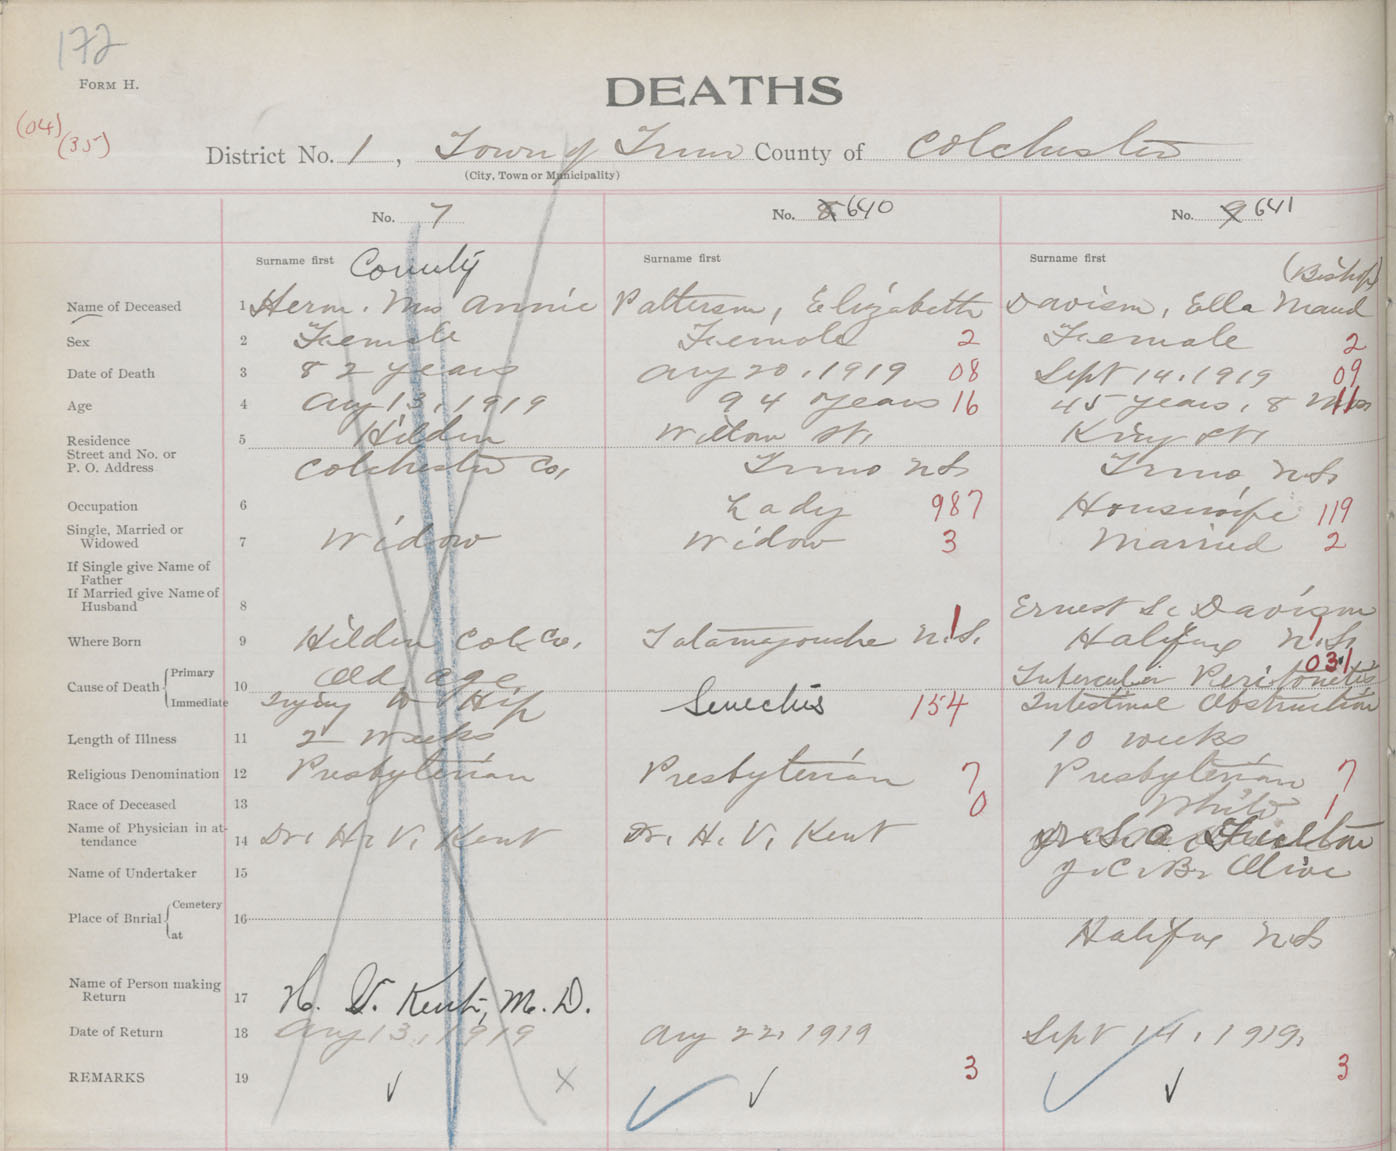 172
FORM H.
DEATHS
(04)
(35)
District No. 1, Town of Truro County of Colchester
(City, Town or Municipality)
No. 7 No. 8 640 No. 9 641
Surname first County Surname first Surname first (Bishop)
Name of Deceased 1 Mrs Annie Patterson, Elizabeth Davison, Ella Maud
Sex 2 Female Female 2 Female 2
Date of Death 3 82 years Aug 20, 1919 08 Sept 14, 1919 09
Age 4 Aug 13, 1919 94 years 16 45 years, 8 Mos 11
Residence 5 Hilden Willow St. King St.
Street and No. or
P. O. Address Colchester Co, Truro N.S. Truro, N.S.
Occupation 6 Lady 987 Housewife 119
Single, Married or
Widowed 7 Widow Widow 3 Married 2
If Single give Name of
Father
If Married give Name of
Husband 8 Ernest S. Davison
Where Born 9 Hilden Col. Co. Tatamagouche N.S. 1 Halifax N.S. 1
Cause of Death Primary 10 Old age Tubercular Peritonitis 031
Immediate Injury to Hip Senectus 154 Intestinal Obstruction
Length of Illness 11 2 weeks 10 weeks
Religious Denomination 12 Presbyterian Presbyterian 7 Presbyterian 7
Race of Deceased 13 0 White 1
Name of Physician in at-
tendance 14 Dr. H. V. Kent Dr. H. V. Kent Dr.
Name of Undertaker 15 Olive
Place of Burial Cemetery 16
at Halifax N.S
Name of Person making
Return 17 H. V. Kent, M.D.
Date of Return 18 Aug 13, 1919 Aug 22, 1919 Sept 14, 1919.
REMARKS 19 3 3